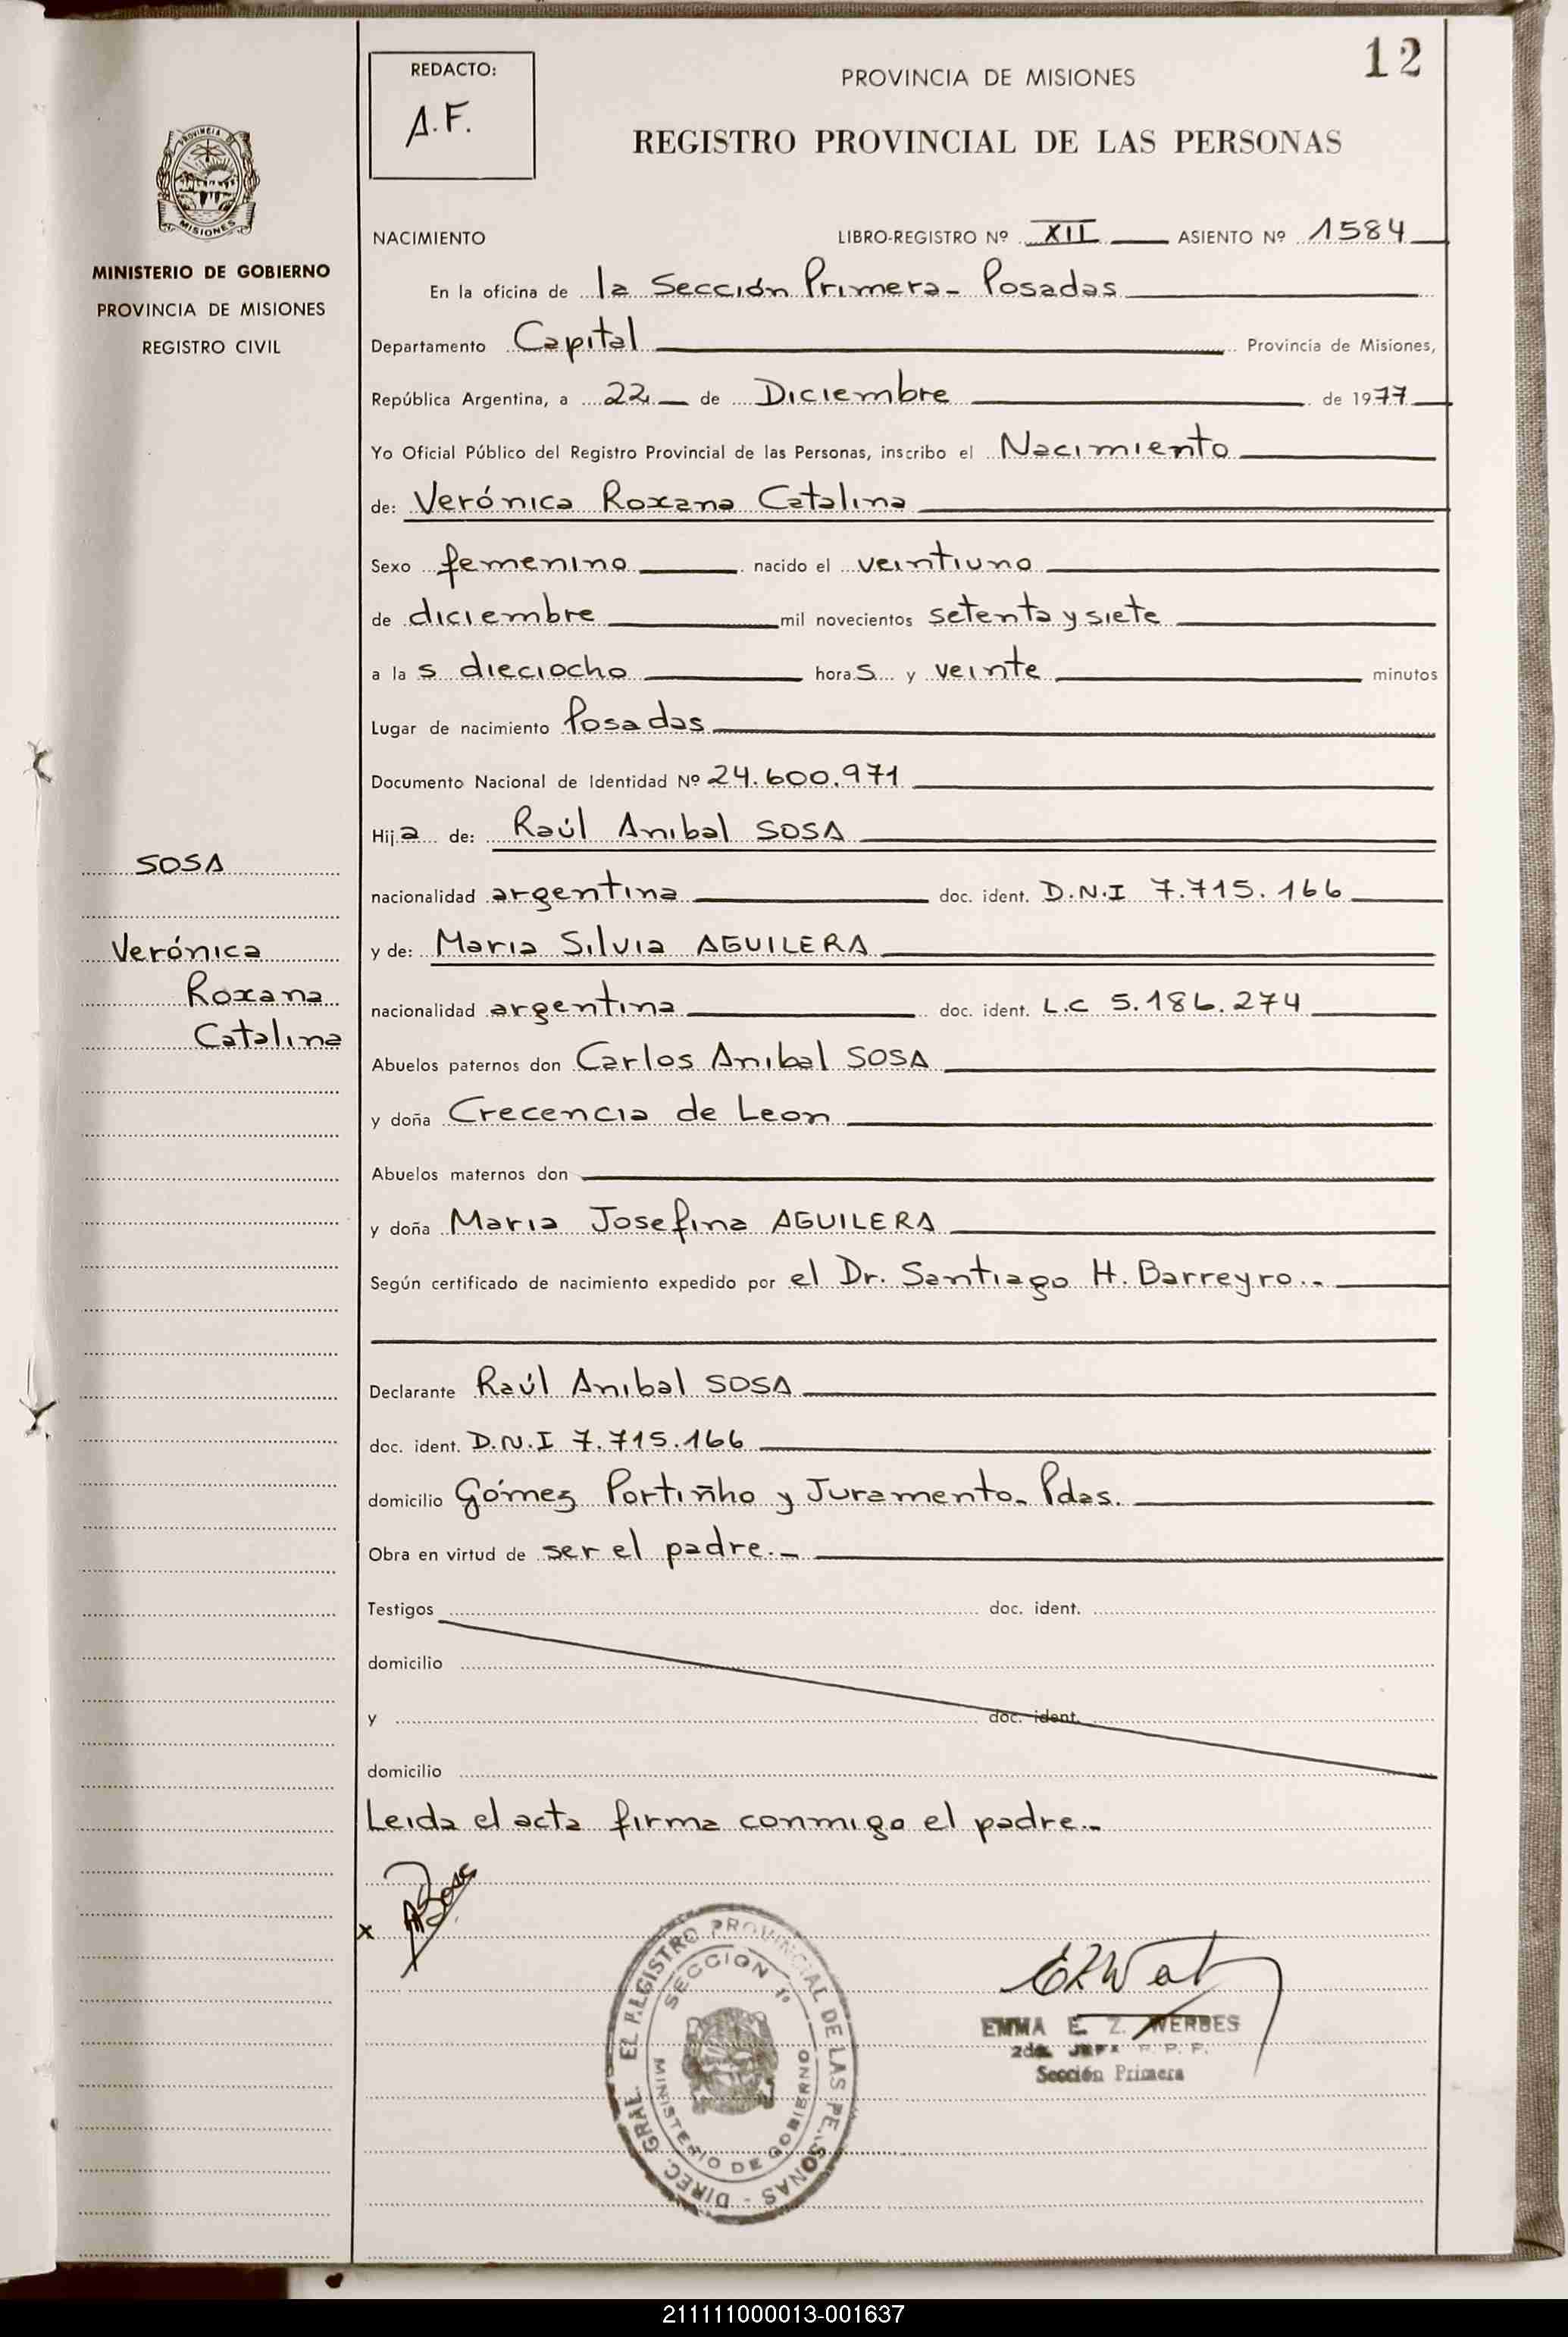 12
REDACTO:
A.F.
PROVINCIA DE MISIONES
REGISTRO PROVINCIAL DE LAS PERSONAS
MISIONES
MINISTERIO DE GOBIERNO
PROVINCIA DE MISIONES
REGISTRO CIVIL
NACIMIENTO LIBRO-REGISTRO Nº XII ASIENTO Nº 1584
En la oficina de la Sección Primera - Posadas
Departamento Capital Provincia de Misiones,
República Argentina, a 22 de Diciembre de 1977
Yo Oficial Público del Registro Provincial de las Personas, inscribo el Nacimiento
de: Verónica Roxana Catalina
Sexo femenino nacido el veintiuno
de diciembre mil novecientos setenta y siete
a las dieciocho horas y veinte minutos
Lugar de nacimiento Posadas
Documento Nacional de Identidad Nº 24.600.971
Hija de: Raúl Anibal SOSA
SOSA
nacionalidad argentina doc. ident. D.N.I 7.715.166
Verónica
Roxana
Catalina
y de: Maria Silvia AGUILERA
nacionalidad argentina doc. ident. L.C 5.186.274
Abuelos paternos don Carlos Anibal SOSA
y doña Crecencia de Leon
Abuelos maternos don
y doña Maria Josefina AGUILERA
Según certificado de nacimiento expedido por el Dr. Santiago H. Barreyro.-
Declarante Raúl Anibal SOSA
doc. ident. D.N.I 7.715.166
domicilio Gómez Portiñho y Juramento - Pdas.
Obra en virtud de ser el padre.-
Testigos doc. ident.
domicilio
y doc. ident.
domicilio
Leida el acta firma conmigo el padre.-
x
DIREC. GRAL. EL REGISTRO PROVINCIAL DE LAS PERSONAS -
SECCION 1º
MINISTERIO DE GOBIERNO
EMMA E. Z. WERBES
2da. JEFA R. P. P.
Sección Primera
211111000013-001637